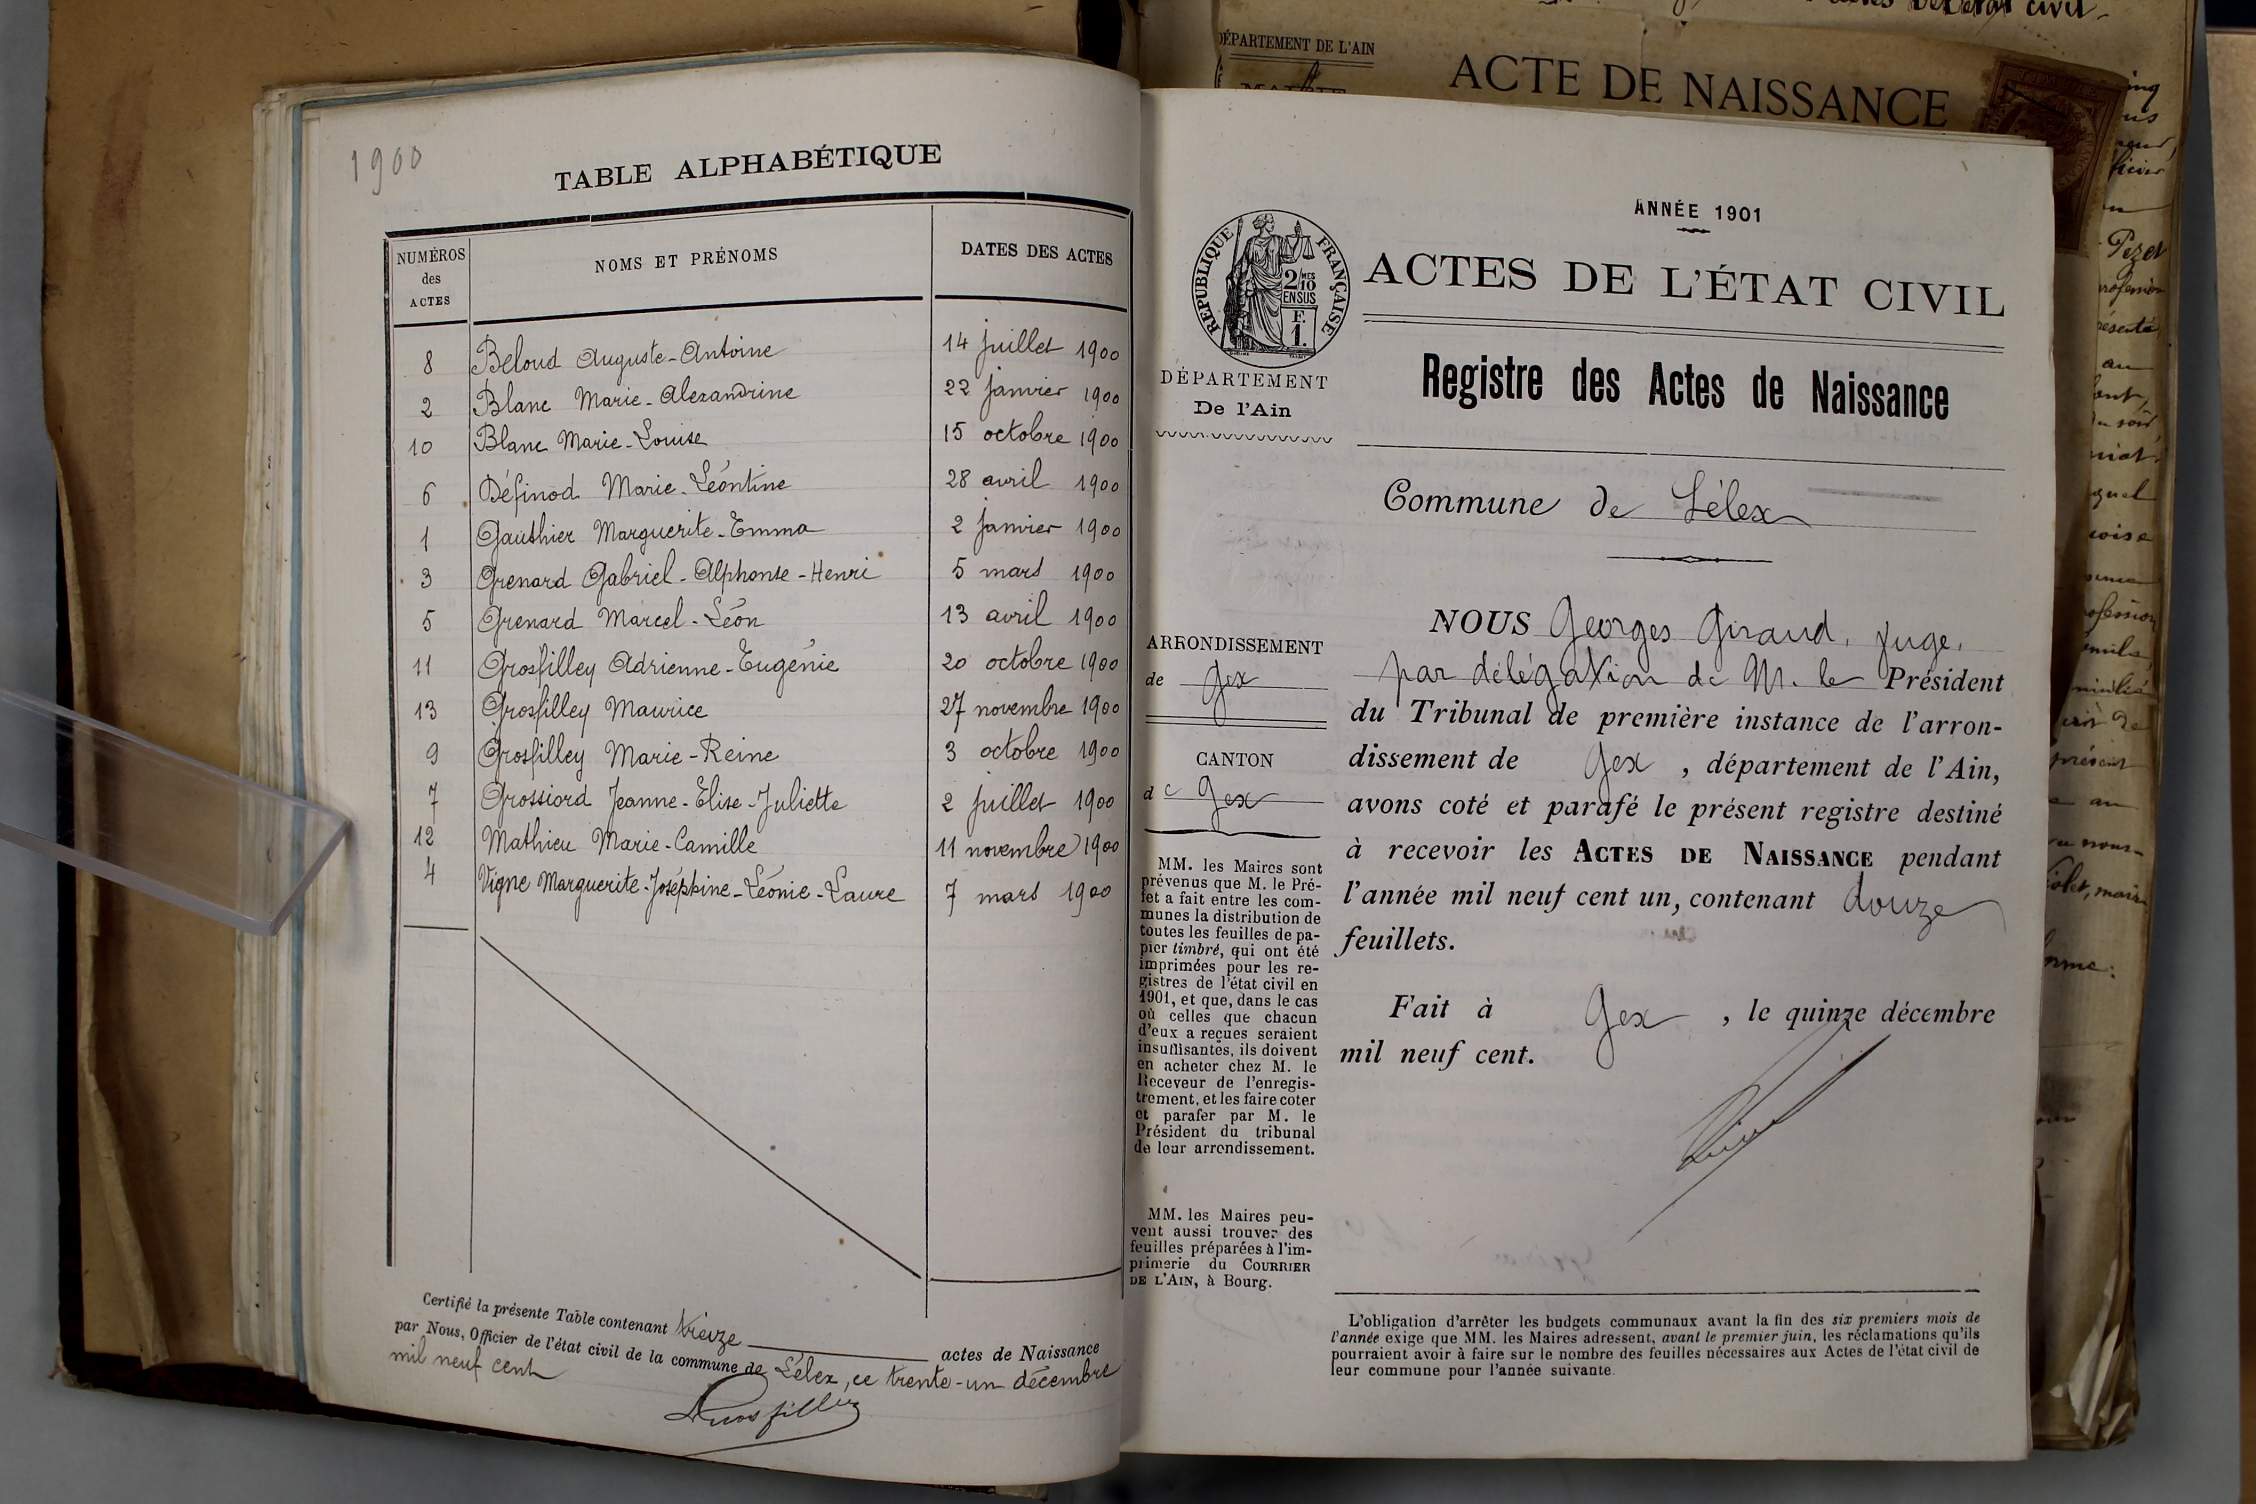 1900
TABLE ALPHABÉTIQUE
NUMÉROS des ACTES NOMS ET PRÉNOMS DATES DES ACTES
8 Béloud Auguste-Antoine 14 juillet 1900
2 Blanc Marie-Alexandrine 22 janvier 1900
10 Blanc Marie-Louise 15 octobre 1900
6 Définod Marie-Léontine 28 avril 1900
1 Gauthier Marguerite-Emma 2 janvier 1900
3 Grenard Gabriel-Alphonse-Henri 5 mars 1900
5 Grenard Marcel-Léon 13 avril 1900
11 Grosfilley Adrienne-Eugénie 20 octobre 1900
13 Grosfilley Maurice 27 novembre 1900
9 Grosfilley Marie-Reine 3 octobre 1900
7 Grossiord Jeanne-Elise-Juliette 2 juillet 1900
12 Mathieu Marie-Camille 11 novembre 1900
4 Vigne Marguerite-Joséphine-Léonie-Laure 7 mars 1900
Certifié la présente Table contenant treize actes de Naissance
par Nous, Officier de l'état civil de la commune de Lélex, ce trente-un décembre
mil neuf cent
Grosfilley
DÉPARTEMENT DE L'AIN
MAIRIE
ACTE DE NAISSANCE
ANNÉE 1901
RÉPUBLIQUE FRANÇAISE
2/10 MES
EN SUS
F.
1.
ACTES DE L'ÉTAT CIVIL
DÉPARTEMENT
De l'Ain
Registre des Actes de Naissance
Commune de Lélex
ARRONDISSEMENT
de Gex
CANTON
de Gex
MM. les Maires sont
prévenus que M. le Pré-
fet a fait entre les com-
munes la distribution de
toutes les feuilles de pa-
pier timbré, qui ont été
imprimées pour les re-
gistres de l'état civil en
1901, et que, dans le cas
où celles que chacun
d'eux a reçues seraient
insuffisantes, ils doivent
en acheter chez M. le
Receveur de l'enregis-
trement, et les faire coter
et parafer par M. le
Président du tribunal
de leur arrondissement.
MM. les Maires peu-
vent aussi trouver des
feuilles préparées à l'im-
primerie du COURRIER
DE L'AIN, à Bourg.
NOUS Georges Giraud, juge,
par délégation de M. le Président
du Tribunal de première instance de l'arron-
dissement de Gex, département de l'Ain,
avons coté et parafé le présent registre destiné
à recevoir les ACTES DE NAISSANCE pendant
l'année mil neuf cent un, contenant douze
feuillets.
Fait à Gex, le quinze décembre
mil neuf cent.
L'obligation d'arrêter les budgets communaux avant la fin des six premiers mois de
l'année exige que MM. les Maires adressent, avant le premier juin, les réclamations qu'ils
pourraient avoir à faire sur le nombre des feuilles nécessaires aux Actes de l'état civil de
leur commune pour l'année suivante.